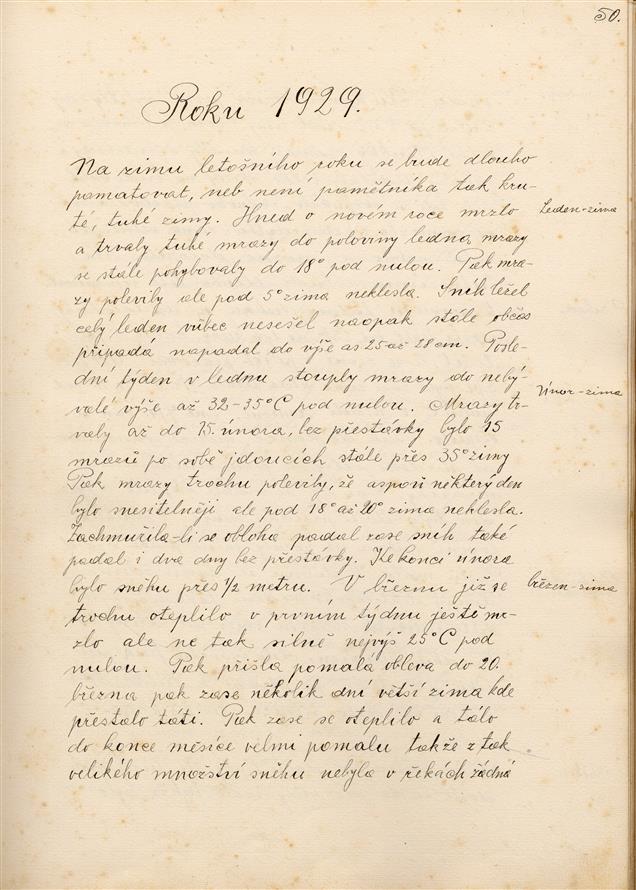 50.
Roku 1929.
Na zimu letošního roku se bude dlouho
pamatovat, neb není pamětníka tak kru-
té, tuhé zimy. Hned o novém roce mrzlo
Leden-zima
a trvaly tuhé mrazy do poloviny ledna mrazy
se stále pohybovaly do 18° pod nulou. Pak mra-
zy polevily ale pod 5° zima neklesla. Sníh ležel
celý leden vůbec nesešel naopak stále občas
připadá napadal do výše as 25 až 28 cm. Posle-
dní týden v lednu stouply mrazy do neby-
valé výše až 32-35°C pod nulou. Mrazy tr-
Únor-zima
valy až do 15. února, bez přestávky bylo 15
mrazů po sobě jdoucích stále přes 35° zimy
Pak mrazy trochu polevily, že aspoň některý den
bylo snesitelněji ale pod 18° až 20° zima neklesla.
Zachmuřila-li se obloha padal zase sníh také
padal i dva dny bez přestávky. Ke konci února
bylo sněhu přes 1/2 metru. V březnu již se
březen-zima
trochu oteplilo v prvním týdnu ještě mr-
zlo ale ne tak silně nejvýš 25°C pod
nulou. Pak přišla pomalá obleva do 20.
března pak zase několik dní větší zima kde
přestalo táti. Pak zase se oteplilo a tálo
do konce měsíce velmi pomalu takže z tak
velikého množství sněhu nebyla v řekách žádná